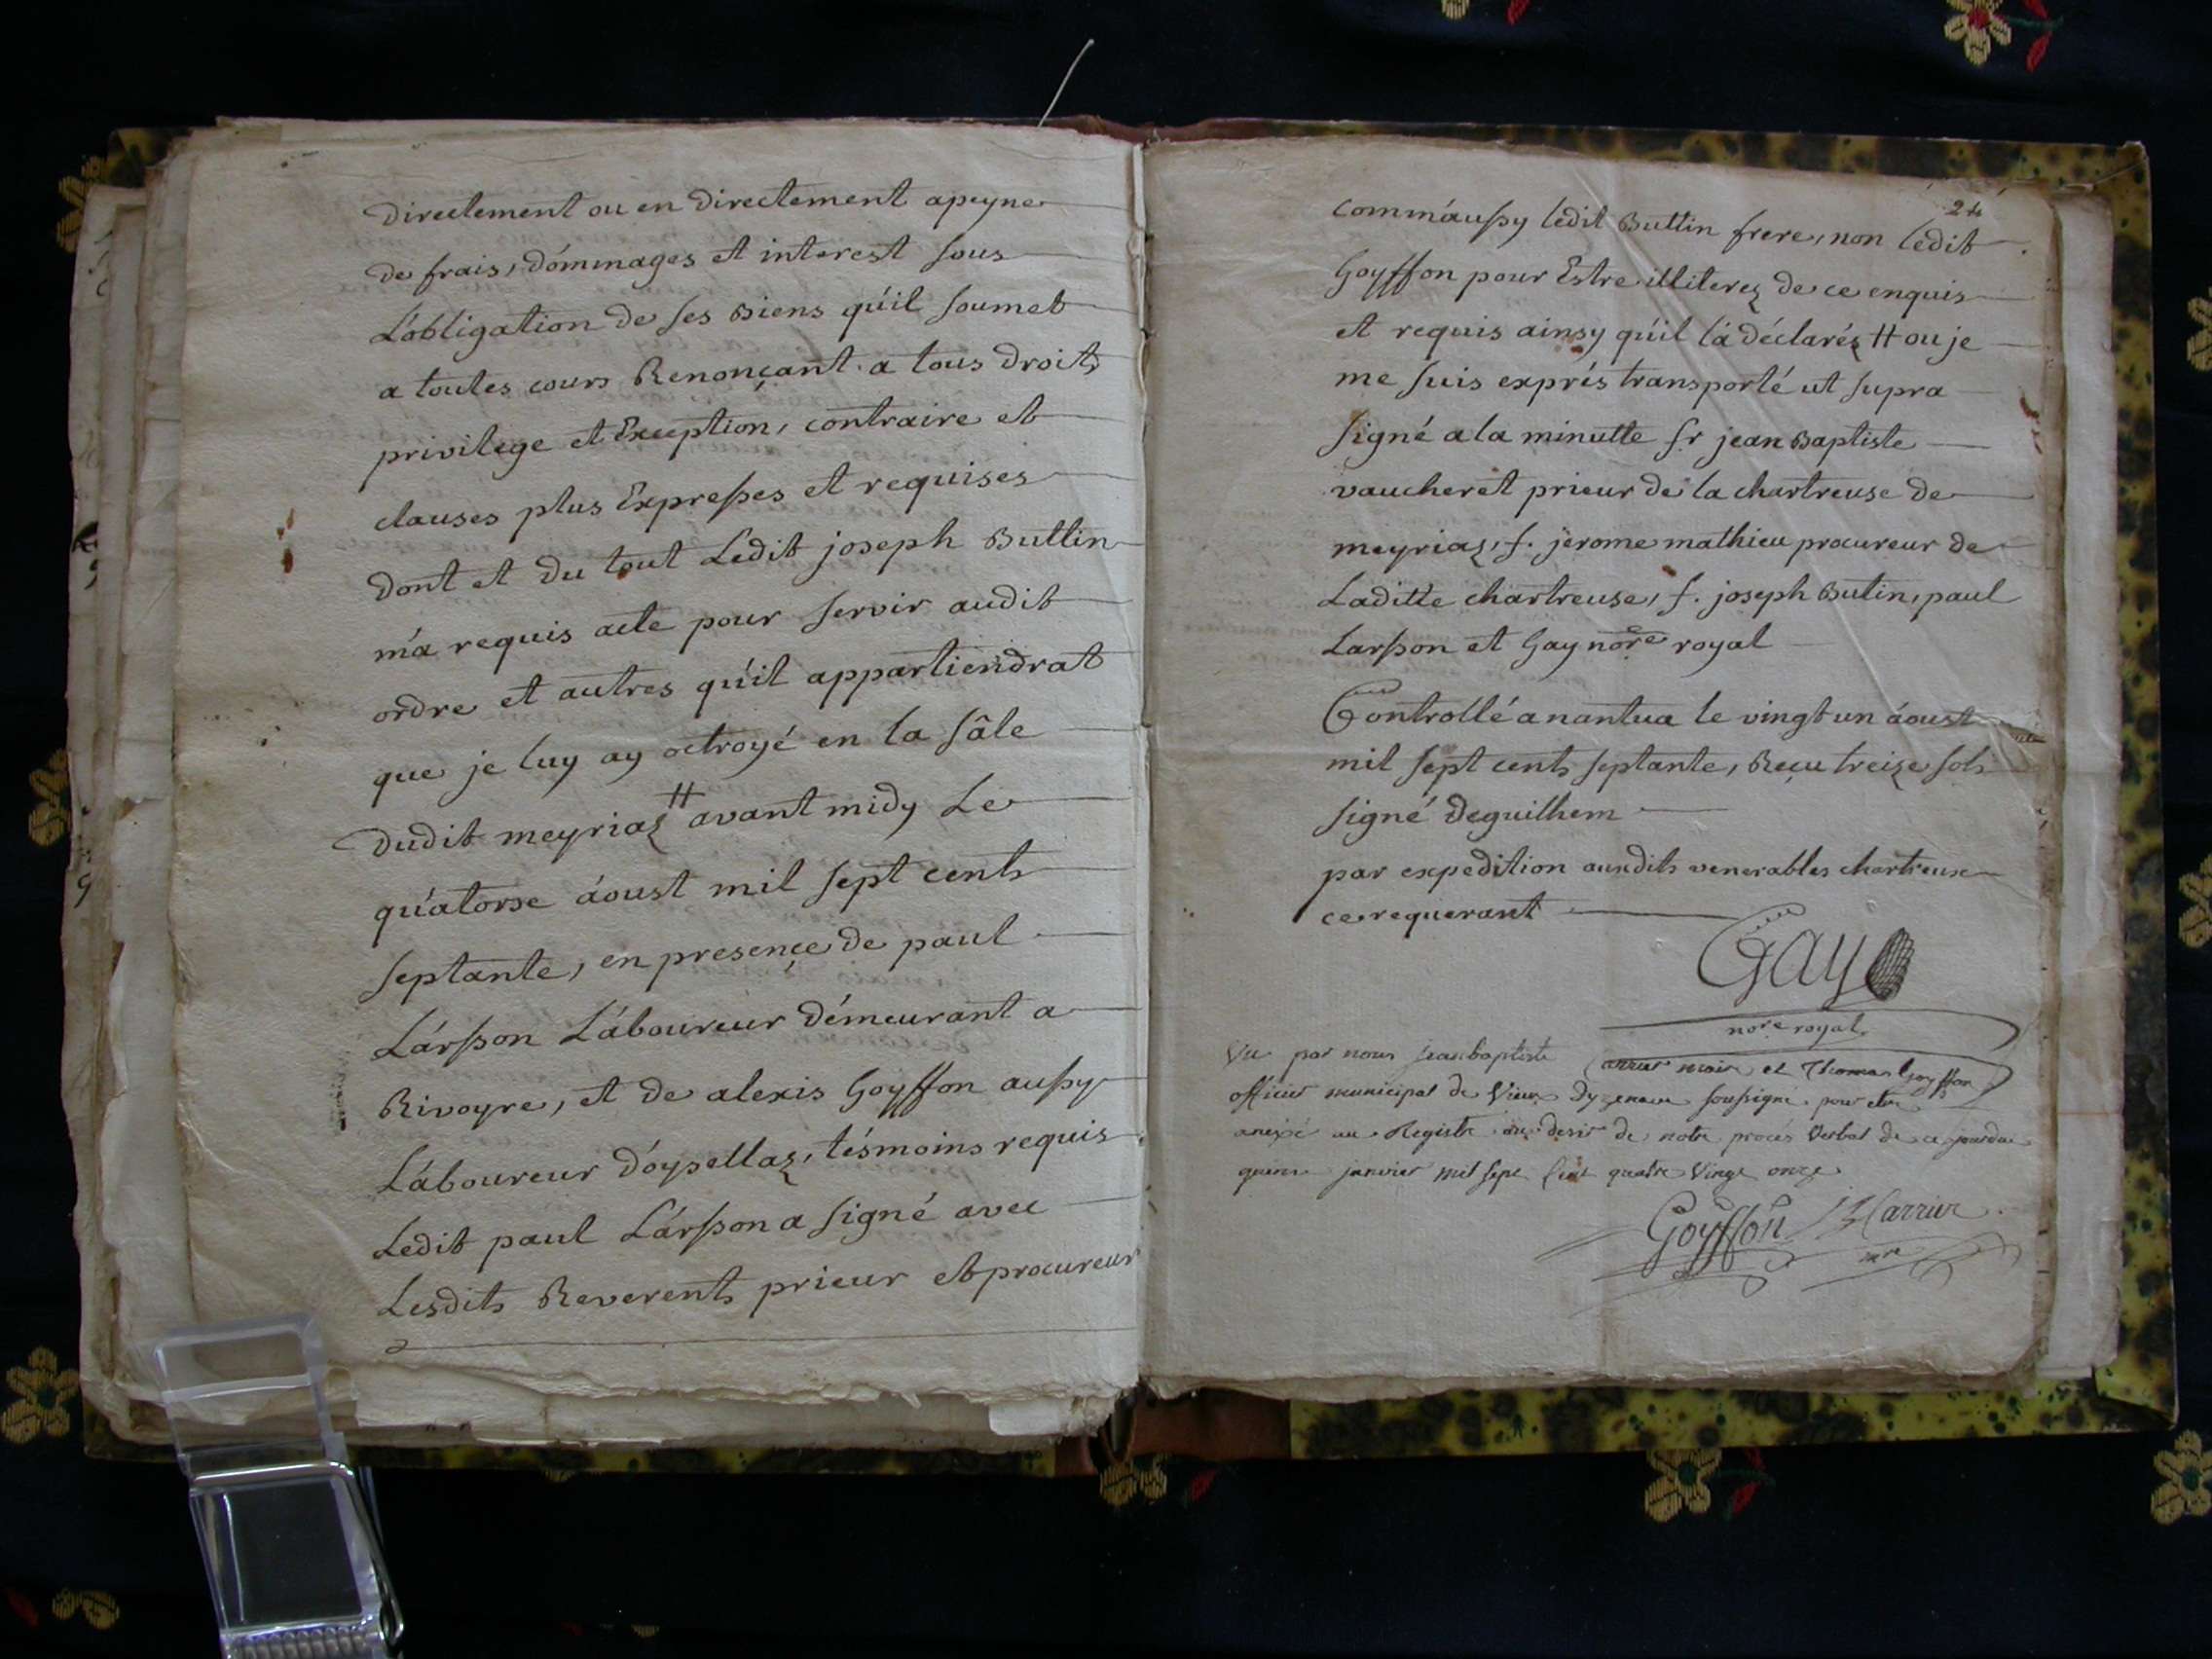 directement ou en directement apeyne
de frais, dommages et interest sous
L'obligation de ses Biens qu'il soumet
a toutes cours Renonçant a tous droits
privilege et Exception, contraire et
clauses plus Expresses et requises
dont et du tout Ledit joseph Buttin
m'a requis acte pour servir audit
ordre et autres qu'il appartiendrat
que je luy ay octroyé en la sâle
dudit meyriaz # avant midy Le
quatorse áoust mil sept cents
septante, en presençe de paul
Lársson Láboureur démeurant a
Rivoyre, et de alexis Goyffon aussy
Láboureur d'oysellaz, tésmoins requis
Ledit paul Lársson a signé avec
Lesdits Reverents prieur et procureur
24
comm'aussy ledit Buttin frere, non ledit
Goyffon pour Estre illiterez de ce enquis
et requis ainsy qu'il l'a déclaréz # ou je
me suis exprés transporté ut supra
signé a la minutte fr jean Baptiste
vaucheret prieur de la chartreuse de
meyriaz, f. jerome mathieu procureur de
Laditte chartreuse, f. joseph Butin, paul
Larsson et Gay nore royal
Controllé a nantua le vingt un áoust
mil sept cents septante, Reçu treize sols
signé deguilhem
par expedition auxdits venerables chartreux
ce requerant
Gay
nore royal
Vu par nous jean baptiste Carrier maire et Thomas Goyffon
officier municipal de Vieux Dyzenave soussigné pour etre
anexé au Registre au desir de notre procés Verbal de ce jourdui
quinze janvier mil sept cent quatre Vingt onze
Goyffon Carrier
mre